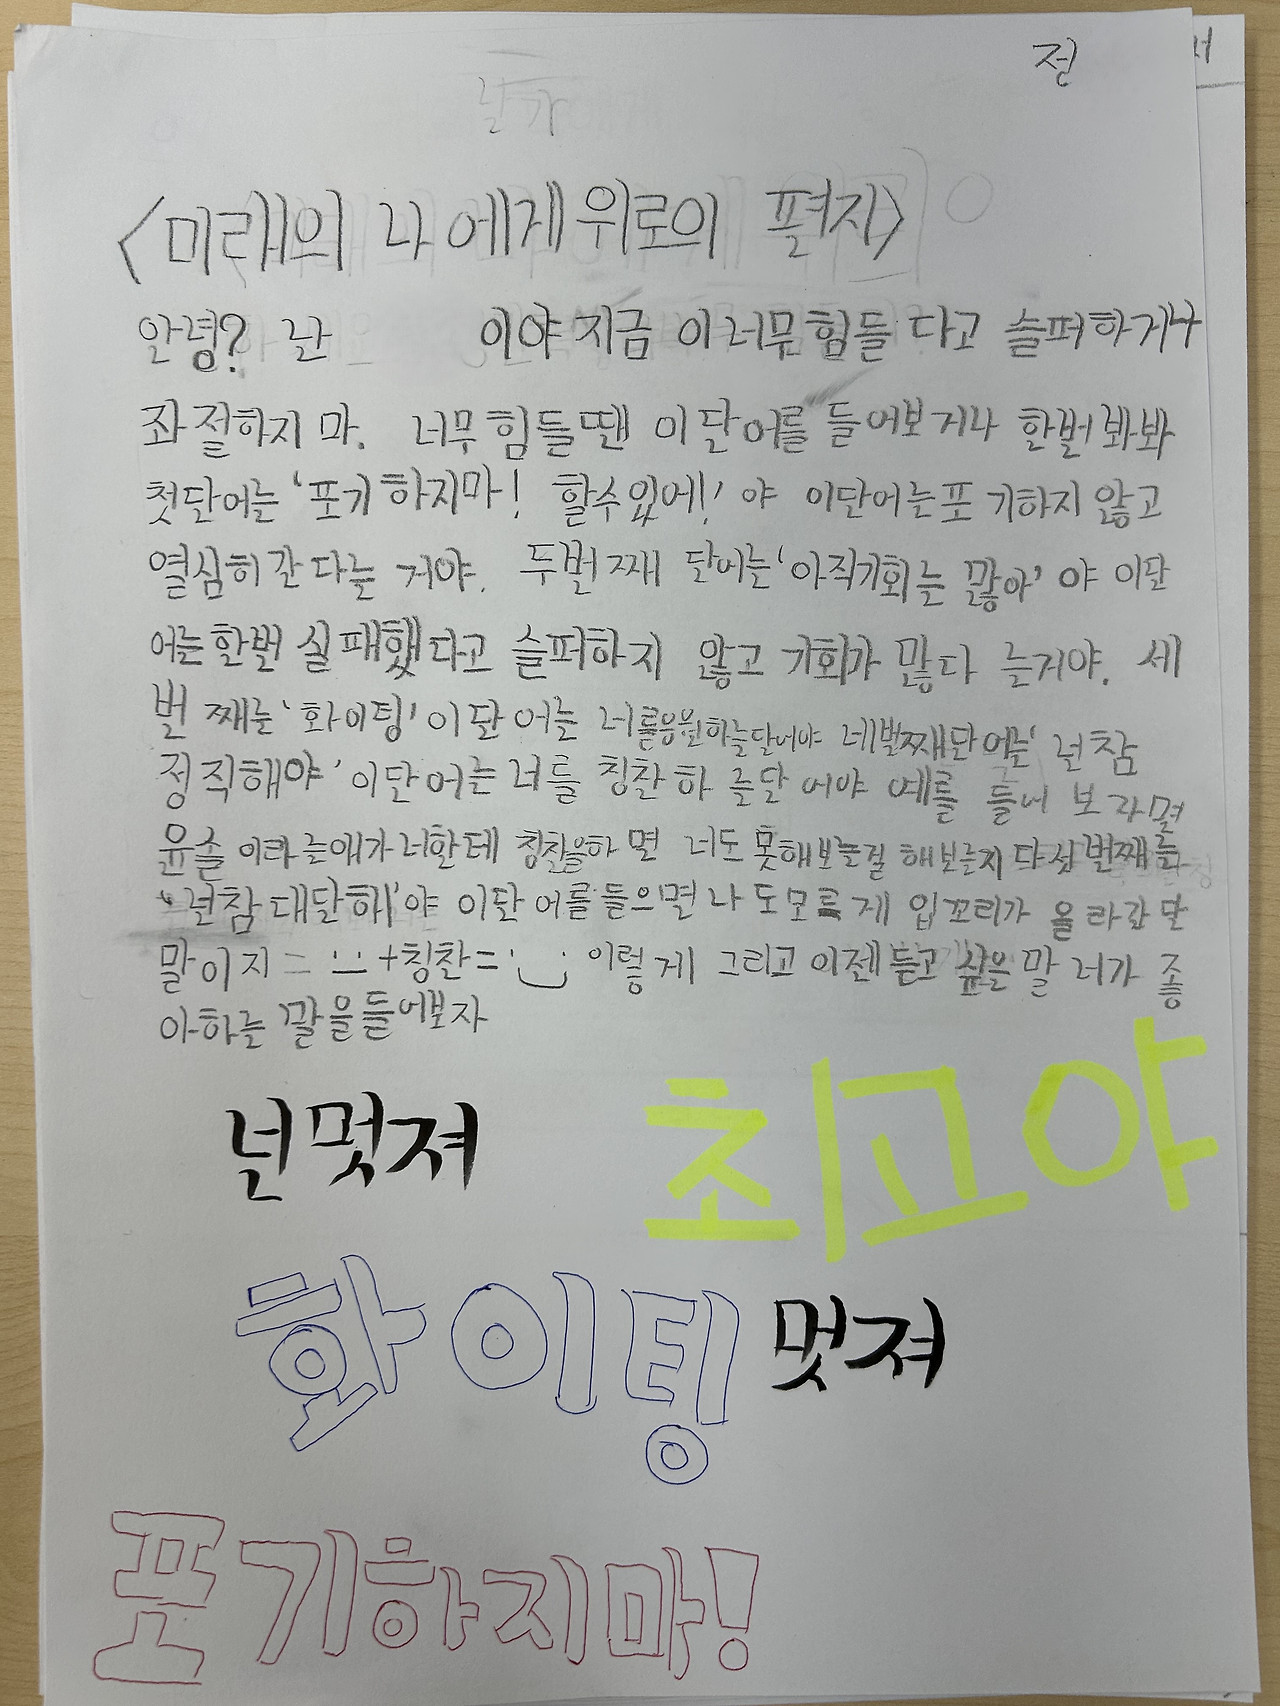 전
날가
<미래의 나에게 위로의 편지>
안녕? 난 이야 지금 이 너무 힘들다고 슬퍼하거나
좌절하지 마. 너무 힘들땐 이 단어를 들어보거나 한번 봐봐
첫단어는 '포기하지마! 할수있에!' 야 이단어는 포기하지 않고
열심히 간다는 거야. 두번째 단어는 '아직기회는 많아' 야 이단
어는 한번 실패했다고 슬퍼하지 않고 기회가 많다는거야. 세
번째는 '화이팅' 이단어는 너를응원하는단어야 네번째단어는 '넌참
정직해야' 이단어는 너를 칭찬하는단어야 예를 들어 보자면
윤솔이라는애가 너한테 칭찬을하면 너도 못해보는걸 해보는지 다섯번째는
'넌참대단해'야 이단어를 들으면 나도모르게 입꼬리가 올라간단
말이지 = +칭찬= 이렇게 그리고 이젠 듣고 싶은 말 너가 좋
아하는 말을들어보자
넌멋져
최고야
화이팅
멋져
포기하지마!